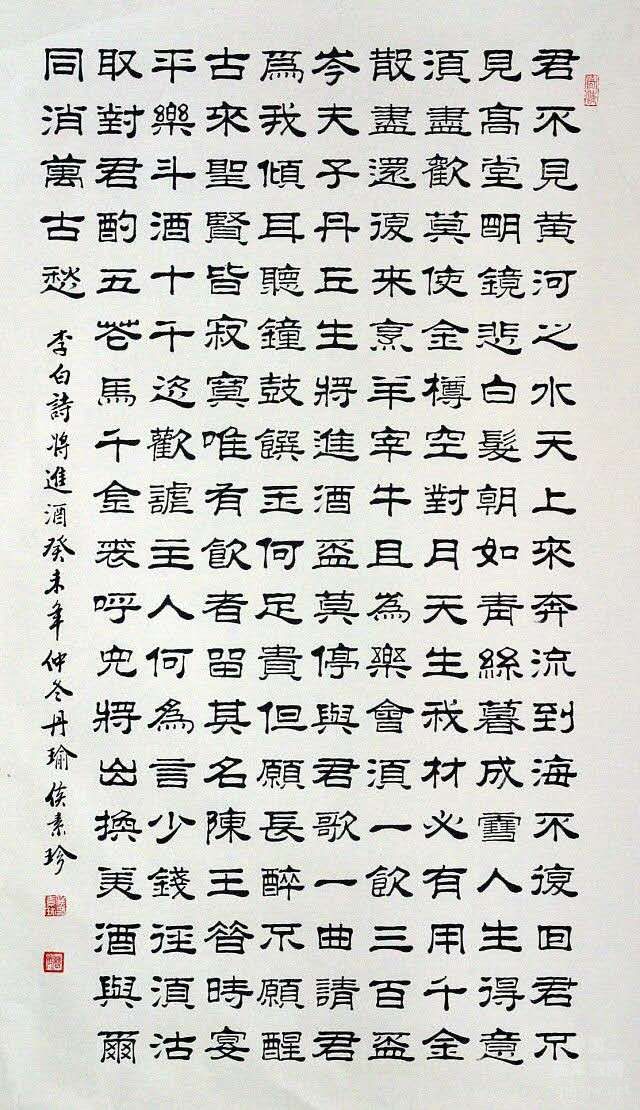 君不見黃河之水天上來奔流到海不復回君不
見高堂明鏡悲白髮朝如青絲暮成雪人生得意
須盡歡莫使金樽空對月天生我材必有用千金
散盡還復来烹羊宰牛且為樂會須一飲三百盃
岑夫子丹丘生將進酒盃莫停與君歌一曲請君
爲我傾耳聽鐘鼓饌玉何足貴但願長醉不願醒
古來聖賢皆寂寞唯有飲者留其名陳王昔時宴
平樂斗酒十千恣歡謔主人何為言少錢徑須沽
取對君酌五花馬千金裘呼兒將出換美酒與爾
同消萬古愁
李白詩將進酒癸未年仲冬丹瑜侯素珍